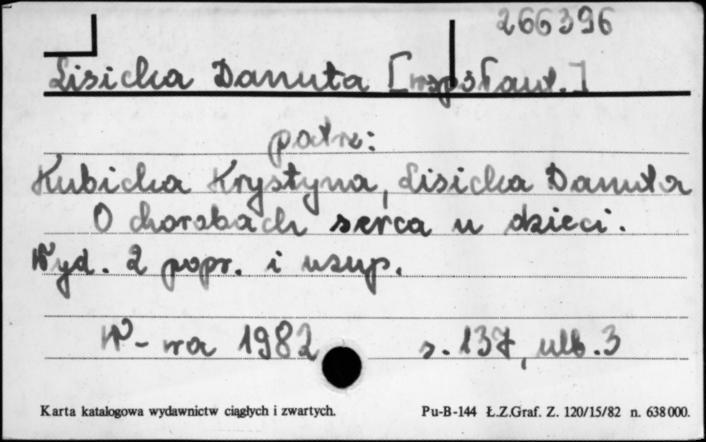 266396
Lisicka Danuta [współaut.]
patrz:
Kubicka Krystyna, Lisicka Danuta
O chorobach serca u dzieci.
Wyd. 2 popr. i uzup.
W-wa 1982 s. 137, ulb. 3
Karta katalogowa wydawnictw ciągłych i zwartych. Pu-B-144 Ł.Z.Graf. Z. 120/15/82 n. 638000.